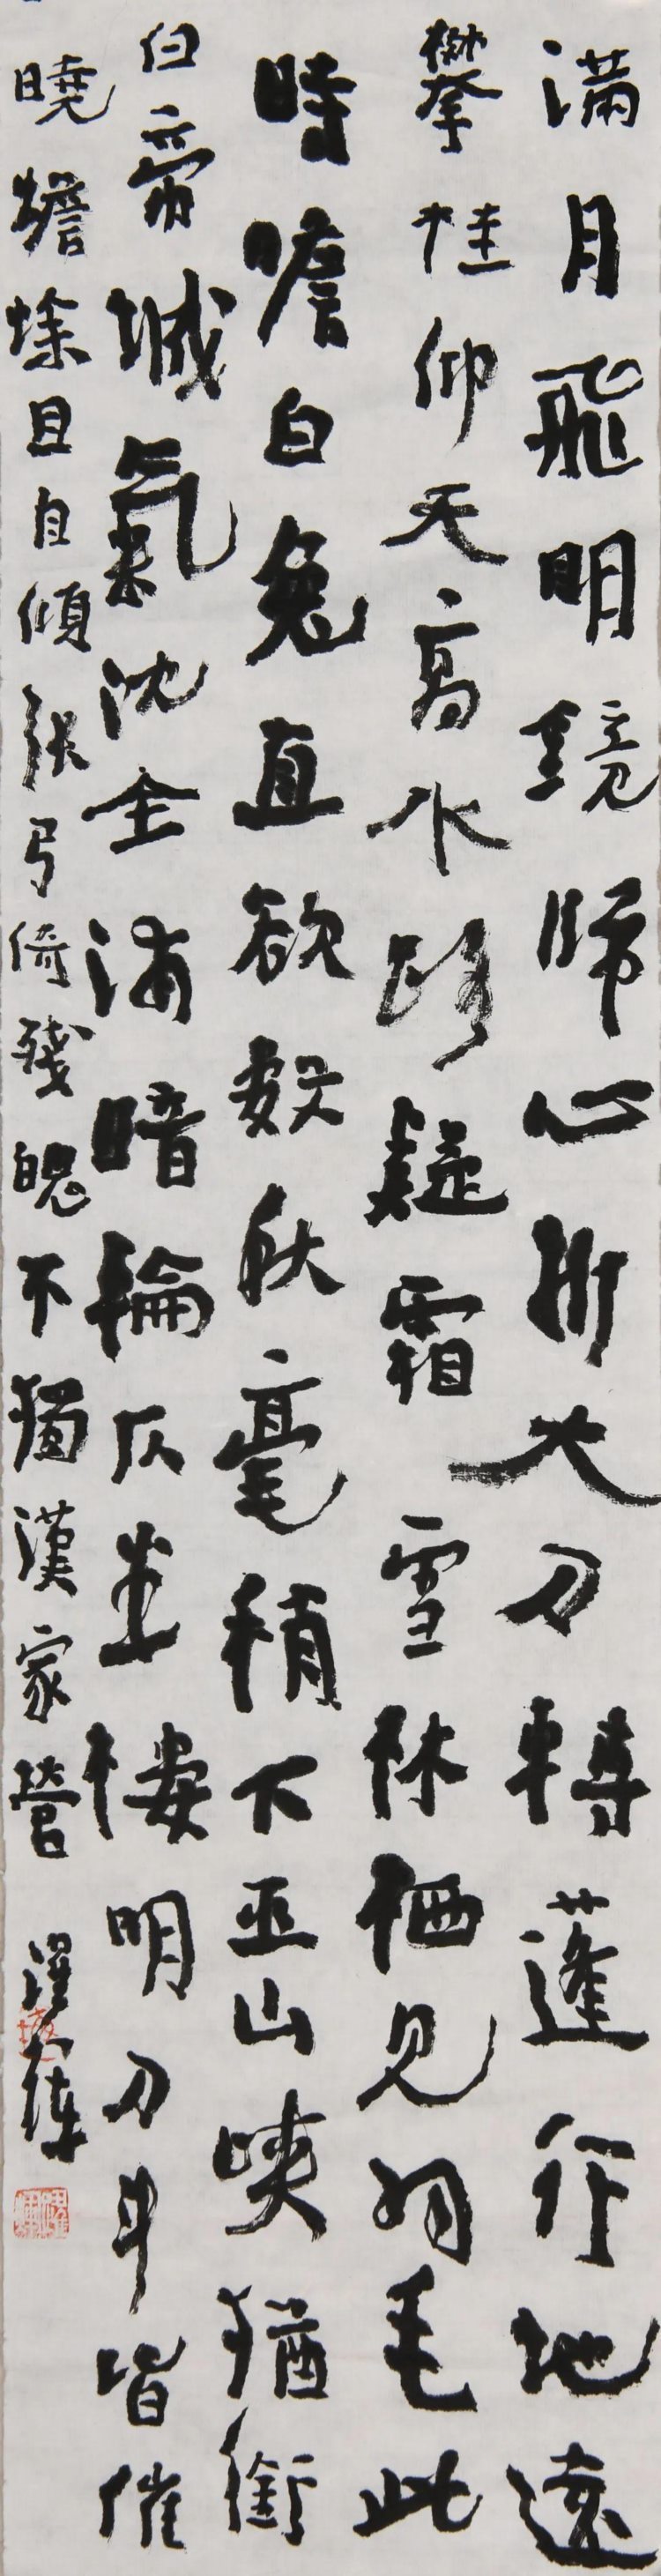 滿月飛明鏡歸心折大刀轉蓬行地遠
攀桂仰天高水路疑霜雪林栖見羽毛此
時瞻白兔直欲數秋毫稍下巫山峽猶銜
白帝城氣沈全浦暗輪仄半樓明刀斗皆催
曉蟾蜍且自傾張弓倚殘魄不獨漢家營